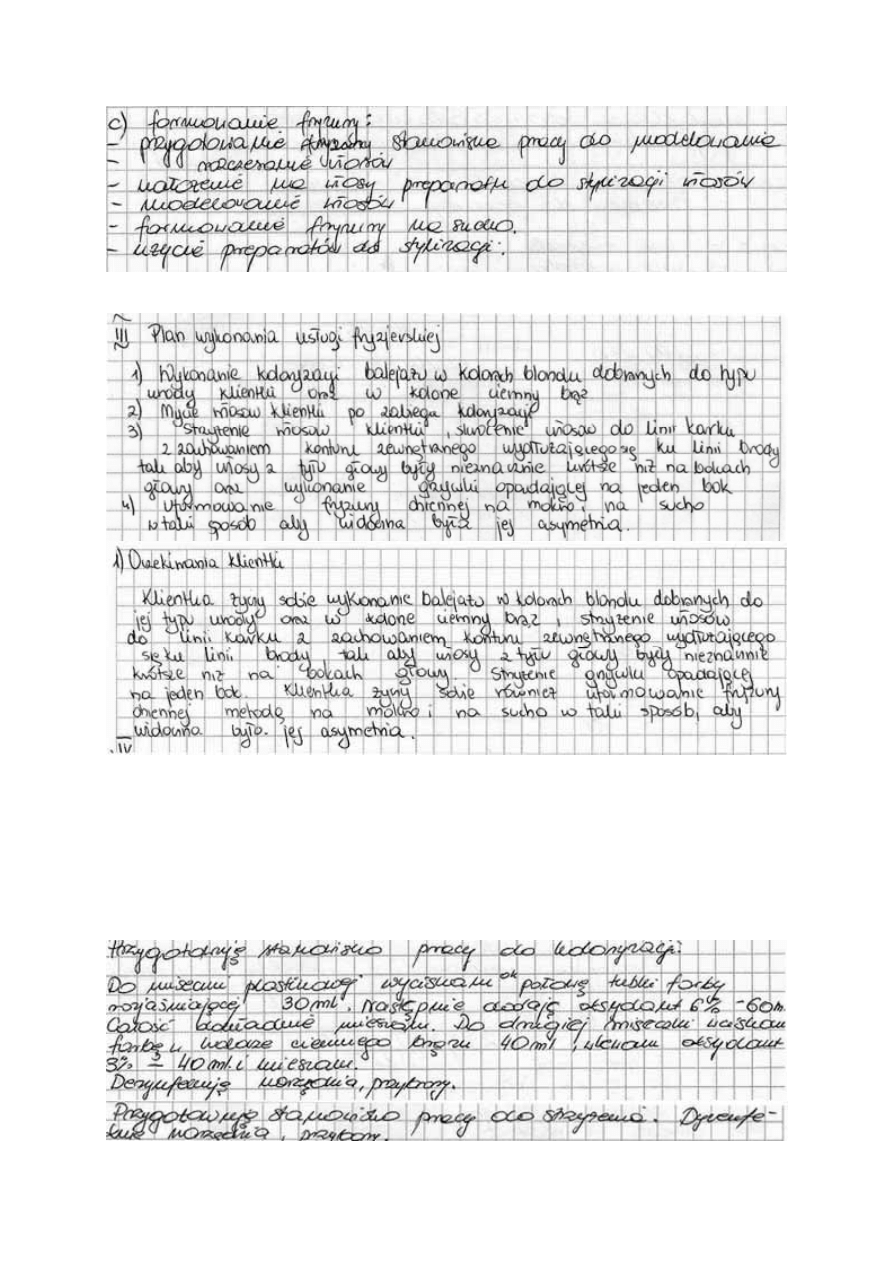 c) formowanie fryzury:
- przygotowanie stanowiska pracy do modelowania
- rozczesanie włosów
- nałożenie na włosy preparatu do stylizacji włosów
- modelowanie włosów
- formowanie fryzury na sucho.
- użycie preparatów do stylizacji.
III Plan wykonania usługi fryzjerskiej
1) Wykonanie koloryzacji balejażu w kolorach blondu dobranych do typu
urody klientki oraz w kolorze ciemny brąz
2) Mycie włosów klientki po zabiegu koloryzacji
3) Strzyżenie włosów klientki, skrócenie włosów do linii karku
z zachowaniem konturu zewnętrznego wydłużającego się ku linii brody
tak aby włosy z tyłu głowy były nieznacznie krótsze niż na bokach
głowy oraz wykonanie grzywki opadającej na jeden bok
4) Uformowanie fryzury dziennej na mokro i na sucho
w taki sposób aby widoczna była jej asymetria.
1) Oczekiwania klientki
Klientka życzy sobie wykonanie balejażu w kolorach blondu dobranych do
jej typu urody oraz w kolorze ciemny brąz, strzyżenie włosów
do linii karku z zachowaniem konturu zewnętrznego wydłużającego
się ku linii brody tak aby włosy z tyłu głowy były nieznacznie
krótsze niż na bokach głowy. Strzyżenie grzywki opadającej
na jeden bok. Klientka życzy sobie również uformowanie fryzury
dziennej metodą na mokro i na sucho w taki sposób, aby
widoczna była jej asymetria.
IV
Przygotowuję stanowisko pracy do koloryzacji.
Do miseczki plastikowej wyciskam ok połowę tubki farby
rozjaśniającej 30ml. Następnie dodaję oksydant 6% - 60m
Całość dokładnie mieszam. Do drugiej miseczki wciskam
farbę w kolorze ciemnego brązu 40ml, wlewam oksydant
3% - 40ml i mieszam.
Dezynfekuję narzędzia, przybory.
Przygotowuję stanowisko pracy do strzyżenia. Dyzenfe-
kuje narzędzia, przybory.